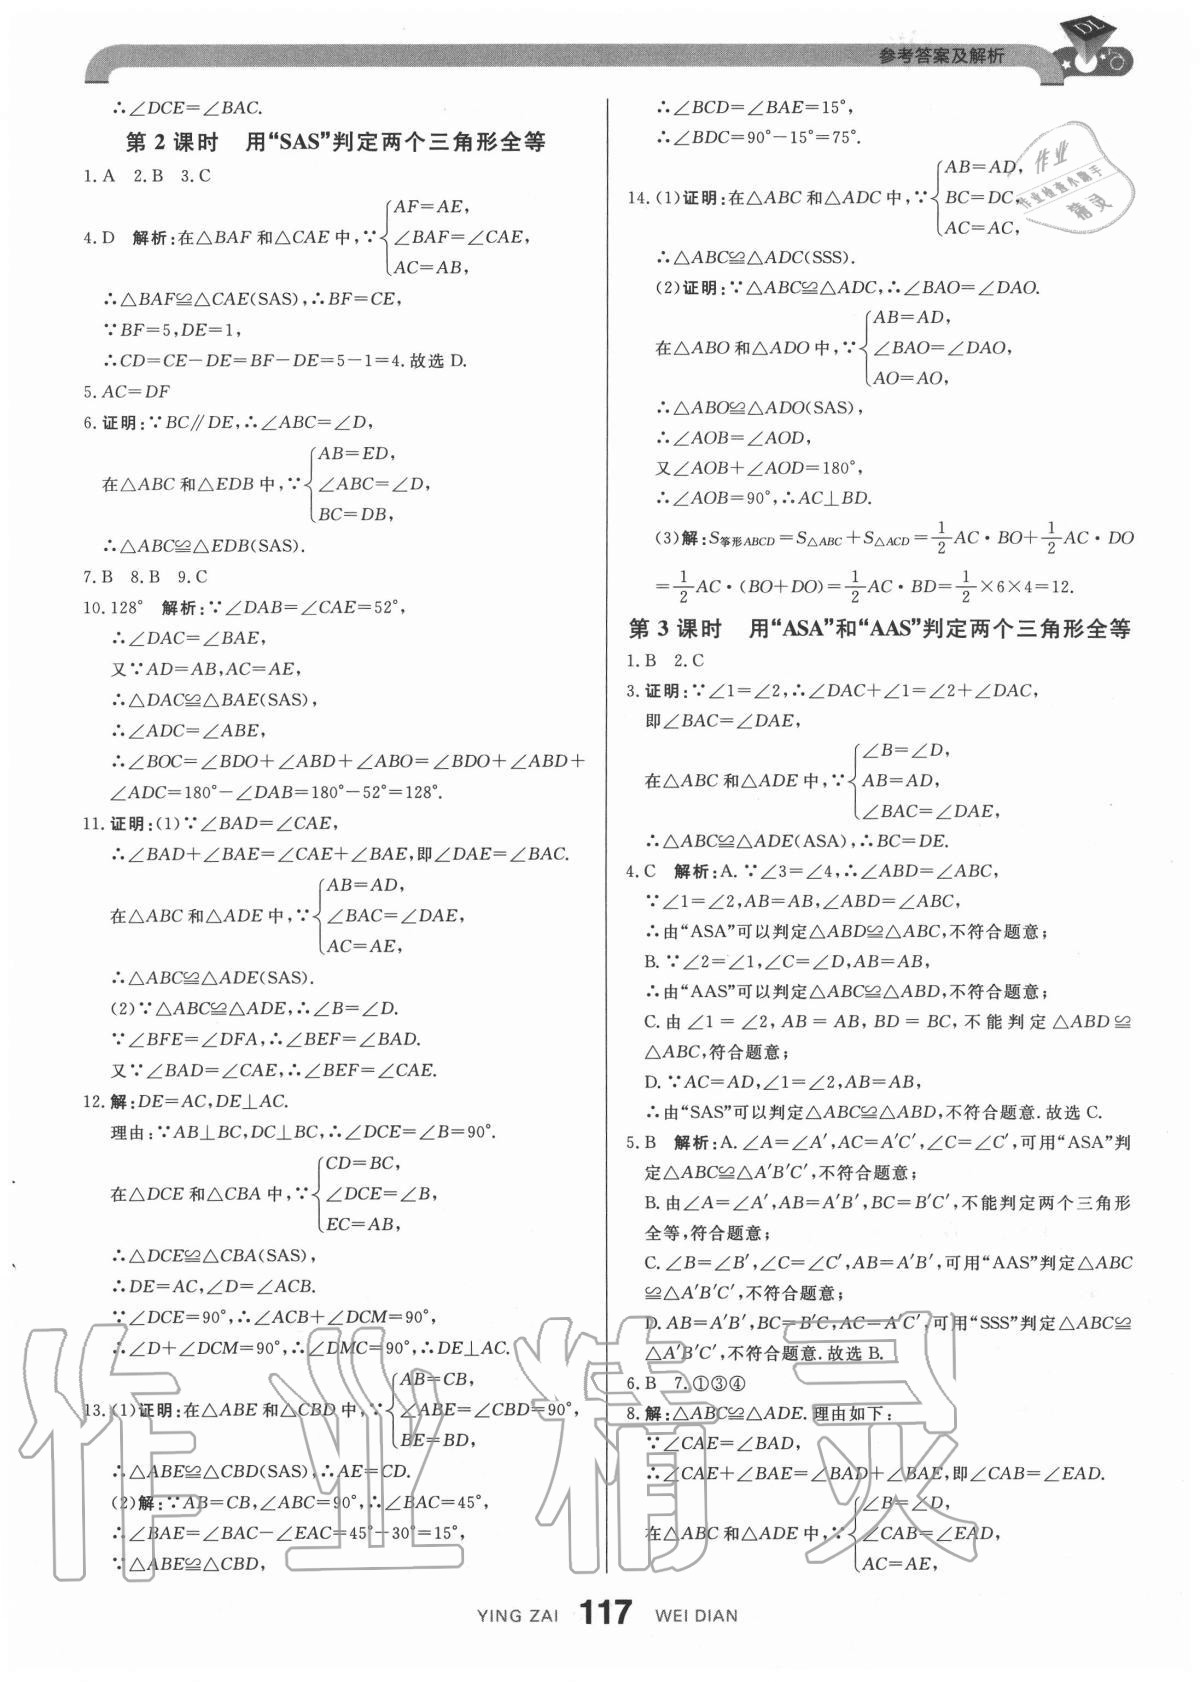 参考答案及解析
DL
∴∠DCE=∠BAC.
第2课时 用“SAS”判定两个三角形全等
1.A 2.B 3.C
AF=AE,
4.D 解析:在△BAF和△CAE中,∵∠BAF=∠CAE,
AC=AB,
∴△BAF≌△CAE(SAS),∴BF=CE,
∵BF=5,DE=1,
∴CD=CE-DE=BF-DE=5-1=4.故选D.
5.AC=DF
6.证明:∵BC∥DE,∴∠ABC=∠D,
AB=ED,
在△ABC和△EDB中,∵∠ABC=∠D,
BC=DB,
∴△ABC≌△EDB(SAS).
7.B 8.B 9.C
10.128° 解析:∵∠DAB=∠CAE=52°,
∴∠DAC=∠BAE,
又∵AD=AB,AC=AE,
∴△DAC≌△BAE(SAS),
∴∠ADC=∠ABE,
∴∠BOC=∠BDO+∠ABD+∠ABO=∠BDO+∠ABD+
∠ADC=180°-∠DAB=180°-52°=128°.
11.证明:(1)∵∠BAD=∠CAE,
∴∠BAD+∠BAE=∠CAE+∠BAE,即∠DAE=∠BAC.
AB=AD,
在△ABC和△ADE中,∵∠BAC=∠DAE,
AC=AE,
∴△ABC≌△ADE(SAS).
(2)∵△ABC≌△ADE,∴∠B=∠D.
∵∠BFE=∠DFA,∴∠BEF=∠BAD.
又∵∠BAD=∠CAE,∴∠BEF=∠CAE.
12.解:DE=AC,DE⊥AC.
理由:∵AB⊥BC,DC⊥BC,∴∠DCE=∠B=90°.
CD=BC,
在△DCE和△CBA中,∵∠DCE=∠B,
EC=AB,
∴△DCE≌△CBA(SAS),
∴DE=AC,∠D=∠ACB.
∵∠DCE=90°,∴∠ACB+∠DCM=90°,
∴∠D+∠DCM=90°,∴∠DMC=90°,∴DE⊥AC.
AB=CB,
13.(1)证明:在△ABE和△CBD中,∵∠ABE=∠CBD=90°,
BE=BD,
∴△ABE≌△CBD(SAS),∴AE=CD.
(2)解:∵AB=CB,∠ABC=90°,∴∠BAC=45°,
∴∠BAE=∠BAC-∠EAC=45°-30°=15°,
∵△ABE≌△CBD,
∴∠BCD=∠BAE=15°,
∴∠BDC=90°-15°=75°.
AB=AD,
14.(1)证明:在△ABC和△ADC中,∵BC=DC,
AC=AC,
∴△ABC≌△ADC(SSS).
(2)证明:∵△ABC≌△ADC,∴∠BAO=∠DAO.
AB=AD,
在△ABO和△ADO中,∵∠BAO=∠DAO,
AO=AO,
∴△ABO≌△ADO(SAS),
∴∠AOB=∠AOD,
又∠AOB+∠AOD=180°,
∴∠AOB=90°,∴AC⊥BD.
(3)解:S筝形ABCD=S△ABC+S△ACD=1/2AC·BO+1/2AC·DO
=1/2AC·(BO+DO)=1/2AC·BD=1/2×6×4=12.
第3课时 用“ASA”和“AAS”判定两个三角形全等
1.B 2.C
3.证明:∵∠1=∠2,∴∠DAC+∠1=∠2+∠DAC,
即∠BAC=∠DAE,
∠B=∠D,
在△ABC和△ADE中,∵AB=AD,
∠BAC=∠DAE,
∴△ABC≌△ADE(ASA),∴BC=DE.
4.C 解析:A.∵∠3=∠4,∴∠ABD=∠ABC,
∵∠1=∠2,AB=AB,∠ABD=∠ABC,
∴由“ASA”可以判定△ABD≌△ABC,不符合题意;
B.∵∠2=∠1,∠C=∠D,AB=AB,
∴由“AAS”可以判定△ABC≌△ABD,不符合题意;
C.由∠1=∠2,AB=AB,BD=BC,不能判定△ABD≌
△ABC,符合题意;
D.∵AC=AD,∠1=∠2,AB=AB,
∴由“SAS”可以判定△ABC≌△ABD,不符合题意.故选C.
5.B 解析:A.∠A=∠A′,AC=A′C′,∠C=∠C′,可用“ASA”判
定△ABC≌△A′B′C′,不符合题意;
B.由∠A=∠A′,AB=A′B′,BC=B′C′,不能判定两个三角形
全等,符合题意;
C.∠B=∠B′,∠C=∠C′,AB=A′B′,可用“AAS”判定△ABC
≌△A′B′C′,不符合题意;
D.AB=A′B′,BC=B′C′,AC=A′C′,可用“SSS”判定△ABC≌
△A′B′C′,不符合题意.故选B.
6.B 7.①③④
8.解:△ABC≌△ADE.理由如下:
∵∠CAE=∠BAD,
∴∠CAE+∠BAE=∠BAD+∠BAE,即∠CAB=∠EAD.
∠B=∠D,
在△ABC和△ADE中,∵∠CAB=∠EAD,
AC=AE,
作业
作业检查小助手
精灵
作业精灵
YING ZAI 117 WEI DIAN